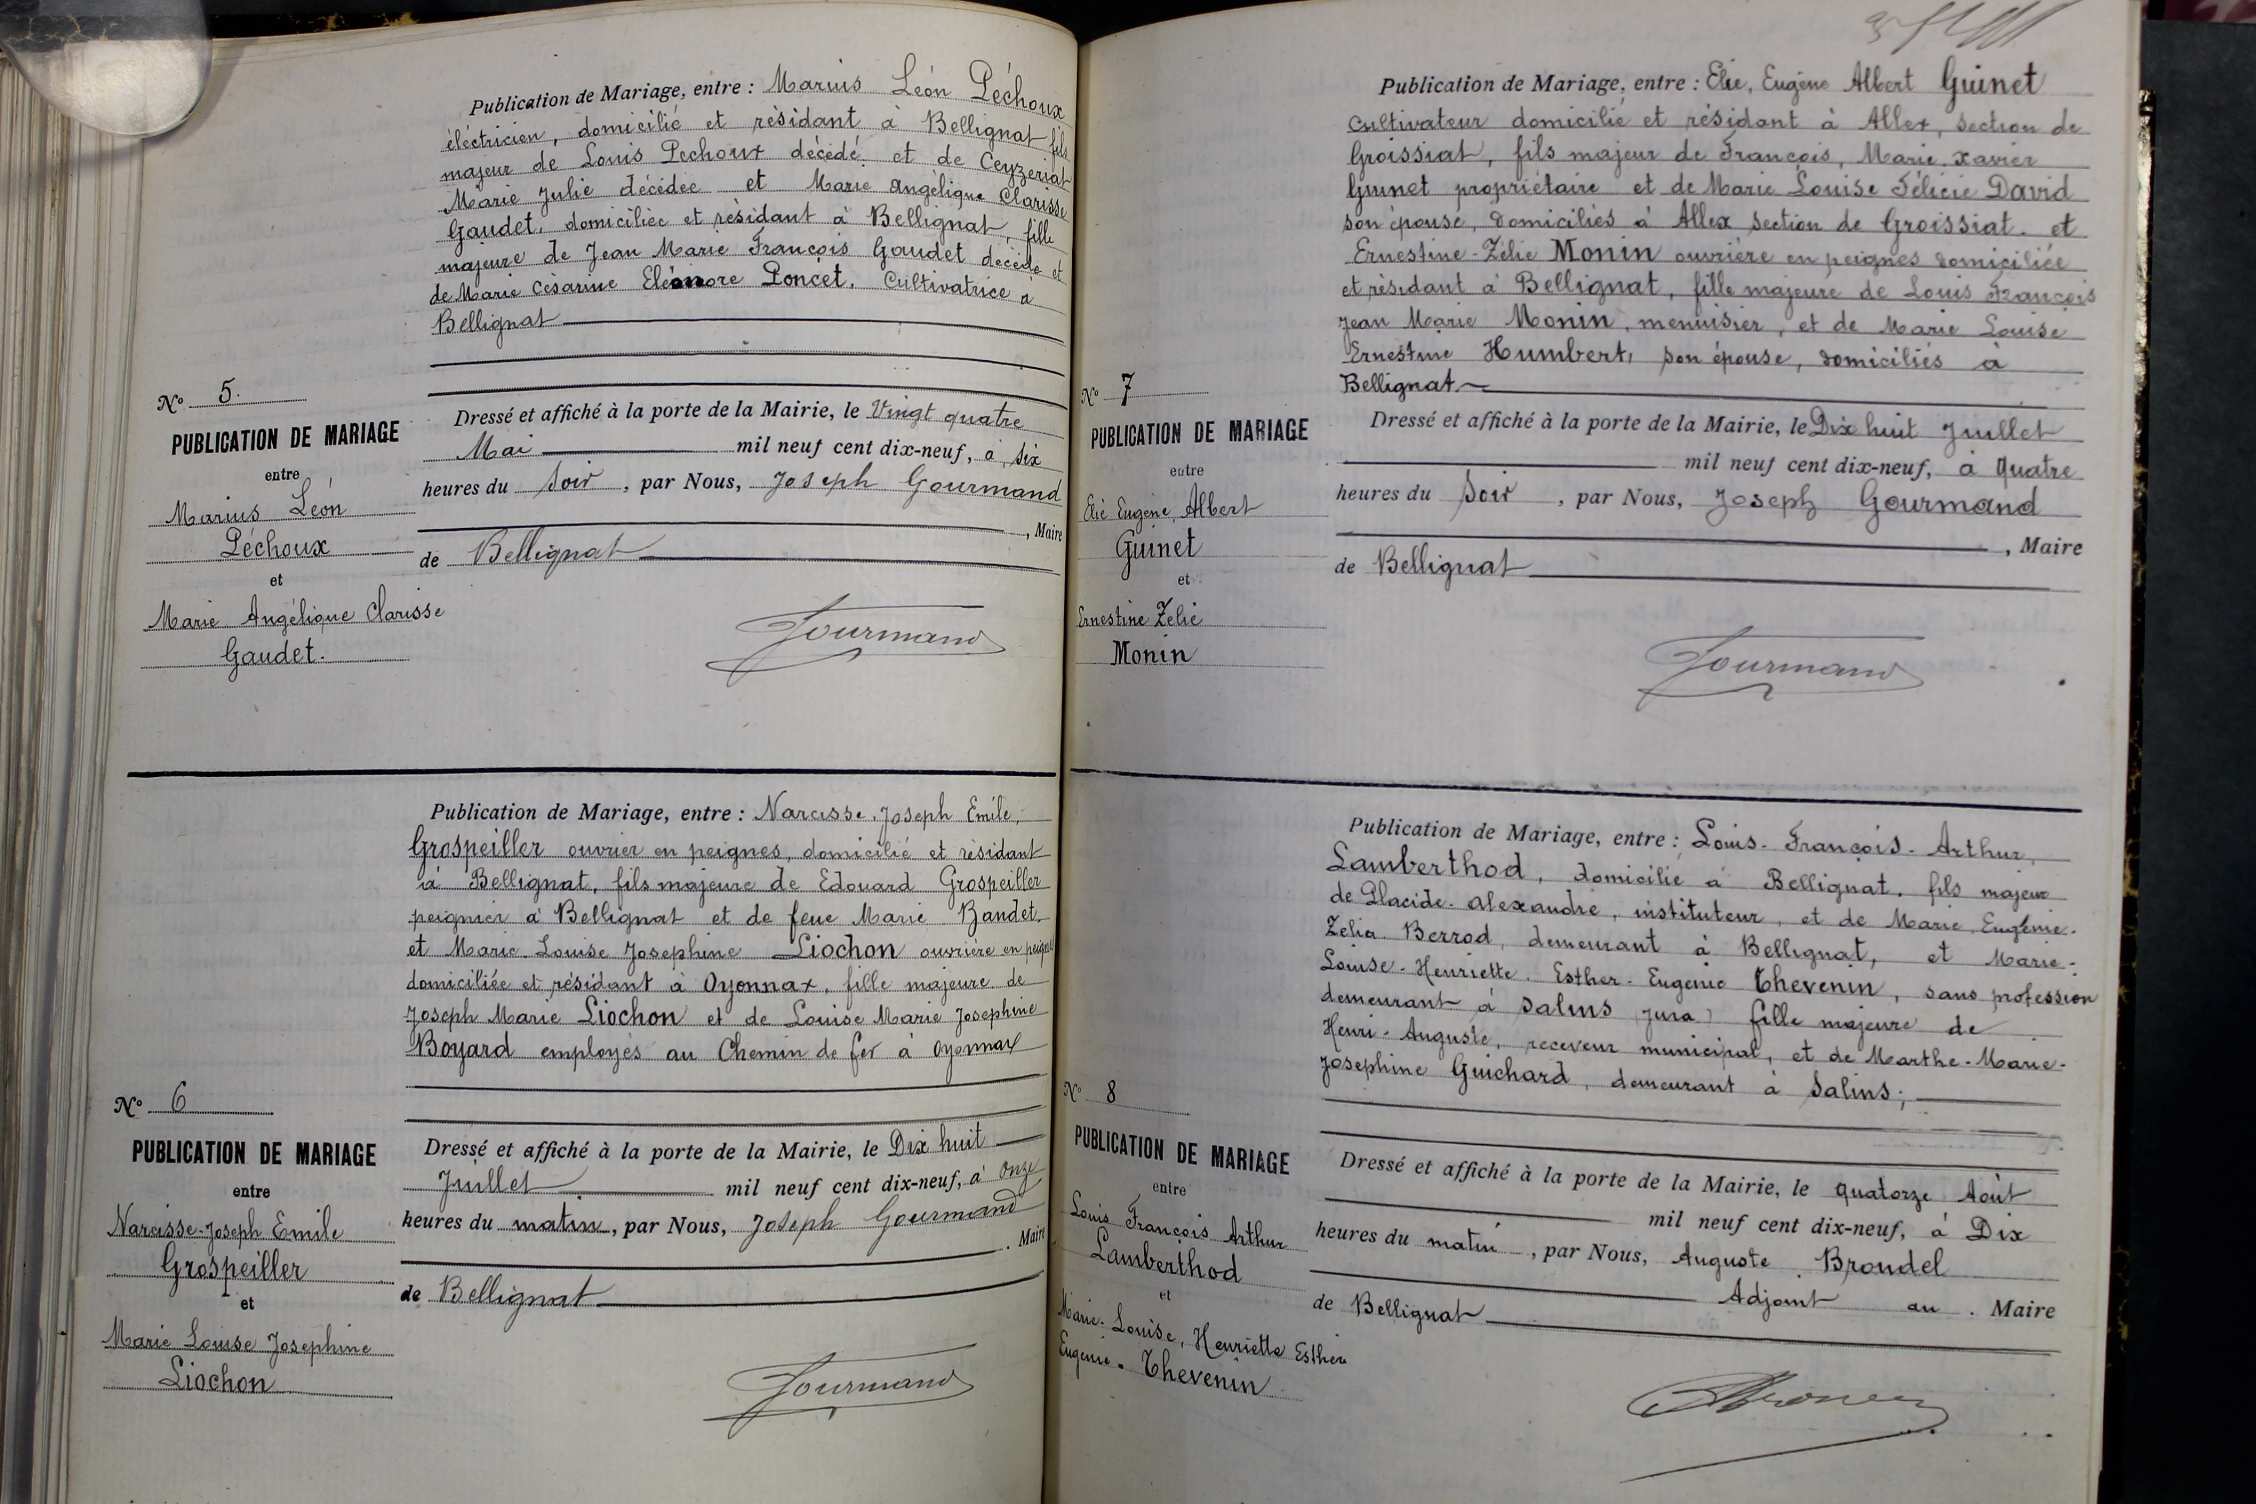 Publication de Mariage, entre : Marius Léon Péchoux
éléctricien, domicilié et résidant à Bellignat fils
majeur de Louis Pechoux décédé, et de Ceyzeriat
Marie Julie décédée et Marie Angélique Clarisse
Gaudet, domiciliée et résidant à Bellignat, fille
majeure de Jean Marie François Gaudet décédé et
de Marie Césarine Eléonore Poncet, Cultivatrice à
Bellignat
N° 5.
PUBLICATION DE MARIAGE
entre
Marius Léon
Péchoux
et
Marie Angélique Clarisse
Gaudet.
Dressé et affiché à la porte de la Mairie, le Vingt quatre
Mai mil neuf cent dix-neuf, à six
heures du soir, par Nous, Joseph Gourmand
, Maire
de Bellignat
Gourmand
Publication de Mariage, entre : Narcisse, Joseph Emile,
Grospeiller ouvrier en peignes, domicilié et résidant
à Bellignat, fils majeure de Edouard Grospeiller
peignier à Bellignat et de feue Marie Bandet.
et Marie Louise Josephine Liochon ouvrière en peignes
domiciliée et résidant à Oyonnax, fille majeure de
Joseph Marie Liochon et de Louise Marie Josephine
Boyard employés au Chemin de fer à Oyonnax
N° 6
PUBLICATION DE MARIAGE
entre
Narcisse-Joseph Emile
Grospeiller
et
Marie Louise Josephine
Liochon
Dressé et affiché à la porte de la Mairie, le Dix huit
Juillet mil neuf cent dix-neuf, à onze
heures du matin, par Nous, Joseph Gourmand
. Maire
de Bellignat
Gourmand
Publication de Mariage, entre : Elie, Eugène Albert Guinet
Cultivateur domicilié et résidant à Allex, section de
Groissiat, fils majeur de François, Marie, Xavier
Guinet propriétaire et de Marie Louise Félicie David
son épouse, domiciliés à Allex section de Groissiat. et
Ernestine-Zélie Monin ouvrière en peignes domiciliée
et résidant à Bellignat, fille majeure de Louis François
Jean Marie Monin, menuisier, et de Marie Louise
Ernestine Humbert, son épouse, domiciliés à
Bellignat.
N° 7
PUBLICATION DE MARIAGE
entre
Elie Eugène, Albert
Guinet
et
Ernestine Zelie
Monin
Dressé et affiché à la porte de la Mairie, le Dix huit Juillet
mil neuf cent dix-neuf, à quatre
heures du soir, par Nous, Joseph Gourmand
, Maire
de Bellignat
Gourmand
Publication de Mariage, entre : Louis-François-Arthur,
Lamberthod, domicilié à Bellignat, fils majeur
de Placide-alexandre, instituteur, et de Marie, Eugénie-
Zelia Berrod, demeurant à Bellignat, et Marie-
Louise-Henriette. Esther-Eugenie Thevenin, sans profession
demeurant à Salins (Jura) fille majeure de
Henri-Auguste, receveur municipal, et de Marthe-Marie-
Josephine Guichard, demeurant à Salins;
N° 8
PUBLICATION DE MARIAGE
entre
Louis François Arthur
Lamberthod
et
Marie-Louise, Henriette Esther
Eugenie-Thevenin
Dressé et affiché à la porte de la Mairie, le quatorze Août
mil neuf cent dix-neuf, à Dix
heures du matin, par Nous, Auguste Brondel
Adjoint au . Maire
de Bellignat